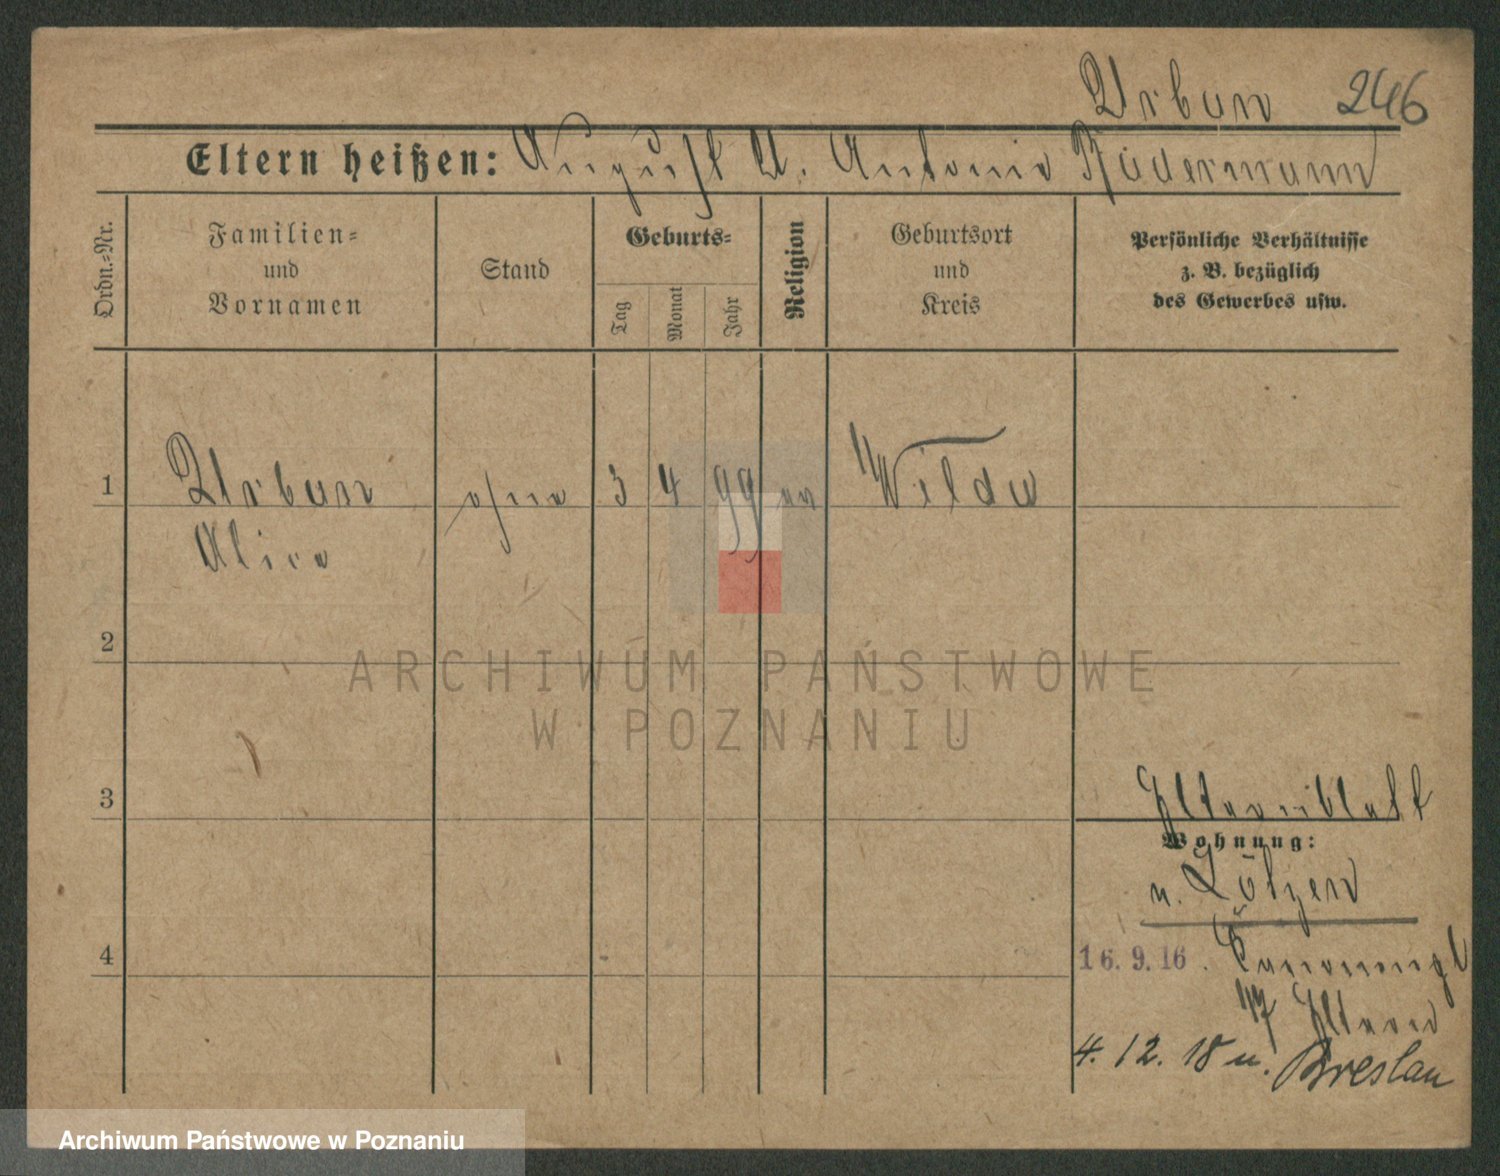 Urban 246
Eltern heißen: August U. Antonie Rüdermann
Ordn.-Nr.
Familien-
und
Vornamen
Stand
Geburts-
Tag
Monat
Jahr
Religion
Geburtsort
und
Kreis
Persönliche Verhältnisse
z. B. bezüglich
des Gewerbes usw.
1 Urban ohne 3 4 99 ev Wilda
Alice
2
3
Elternblatt
Wohnung:
n. Lötzen
4
16.9.16.
17 Eltern
4. 12. 18 n. Breslau
ARCHIWUM PAŃSTWOWE
W POZNANIU
Archiwum Państwowe w Poznaniu